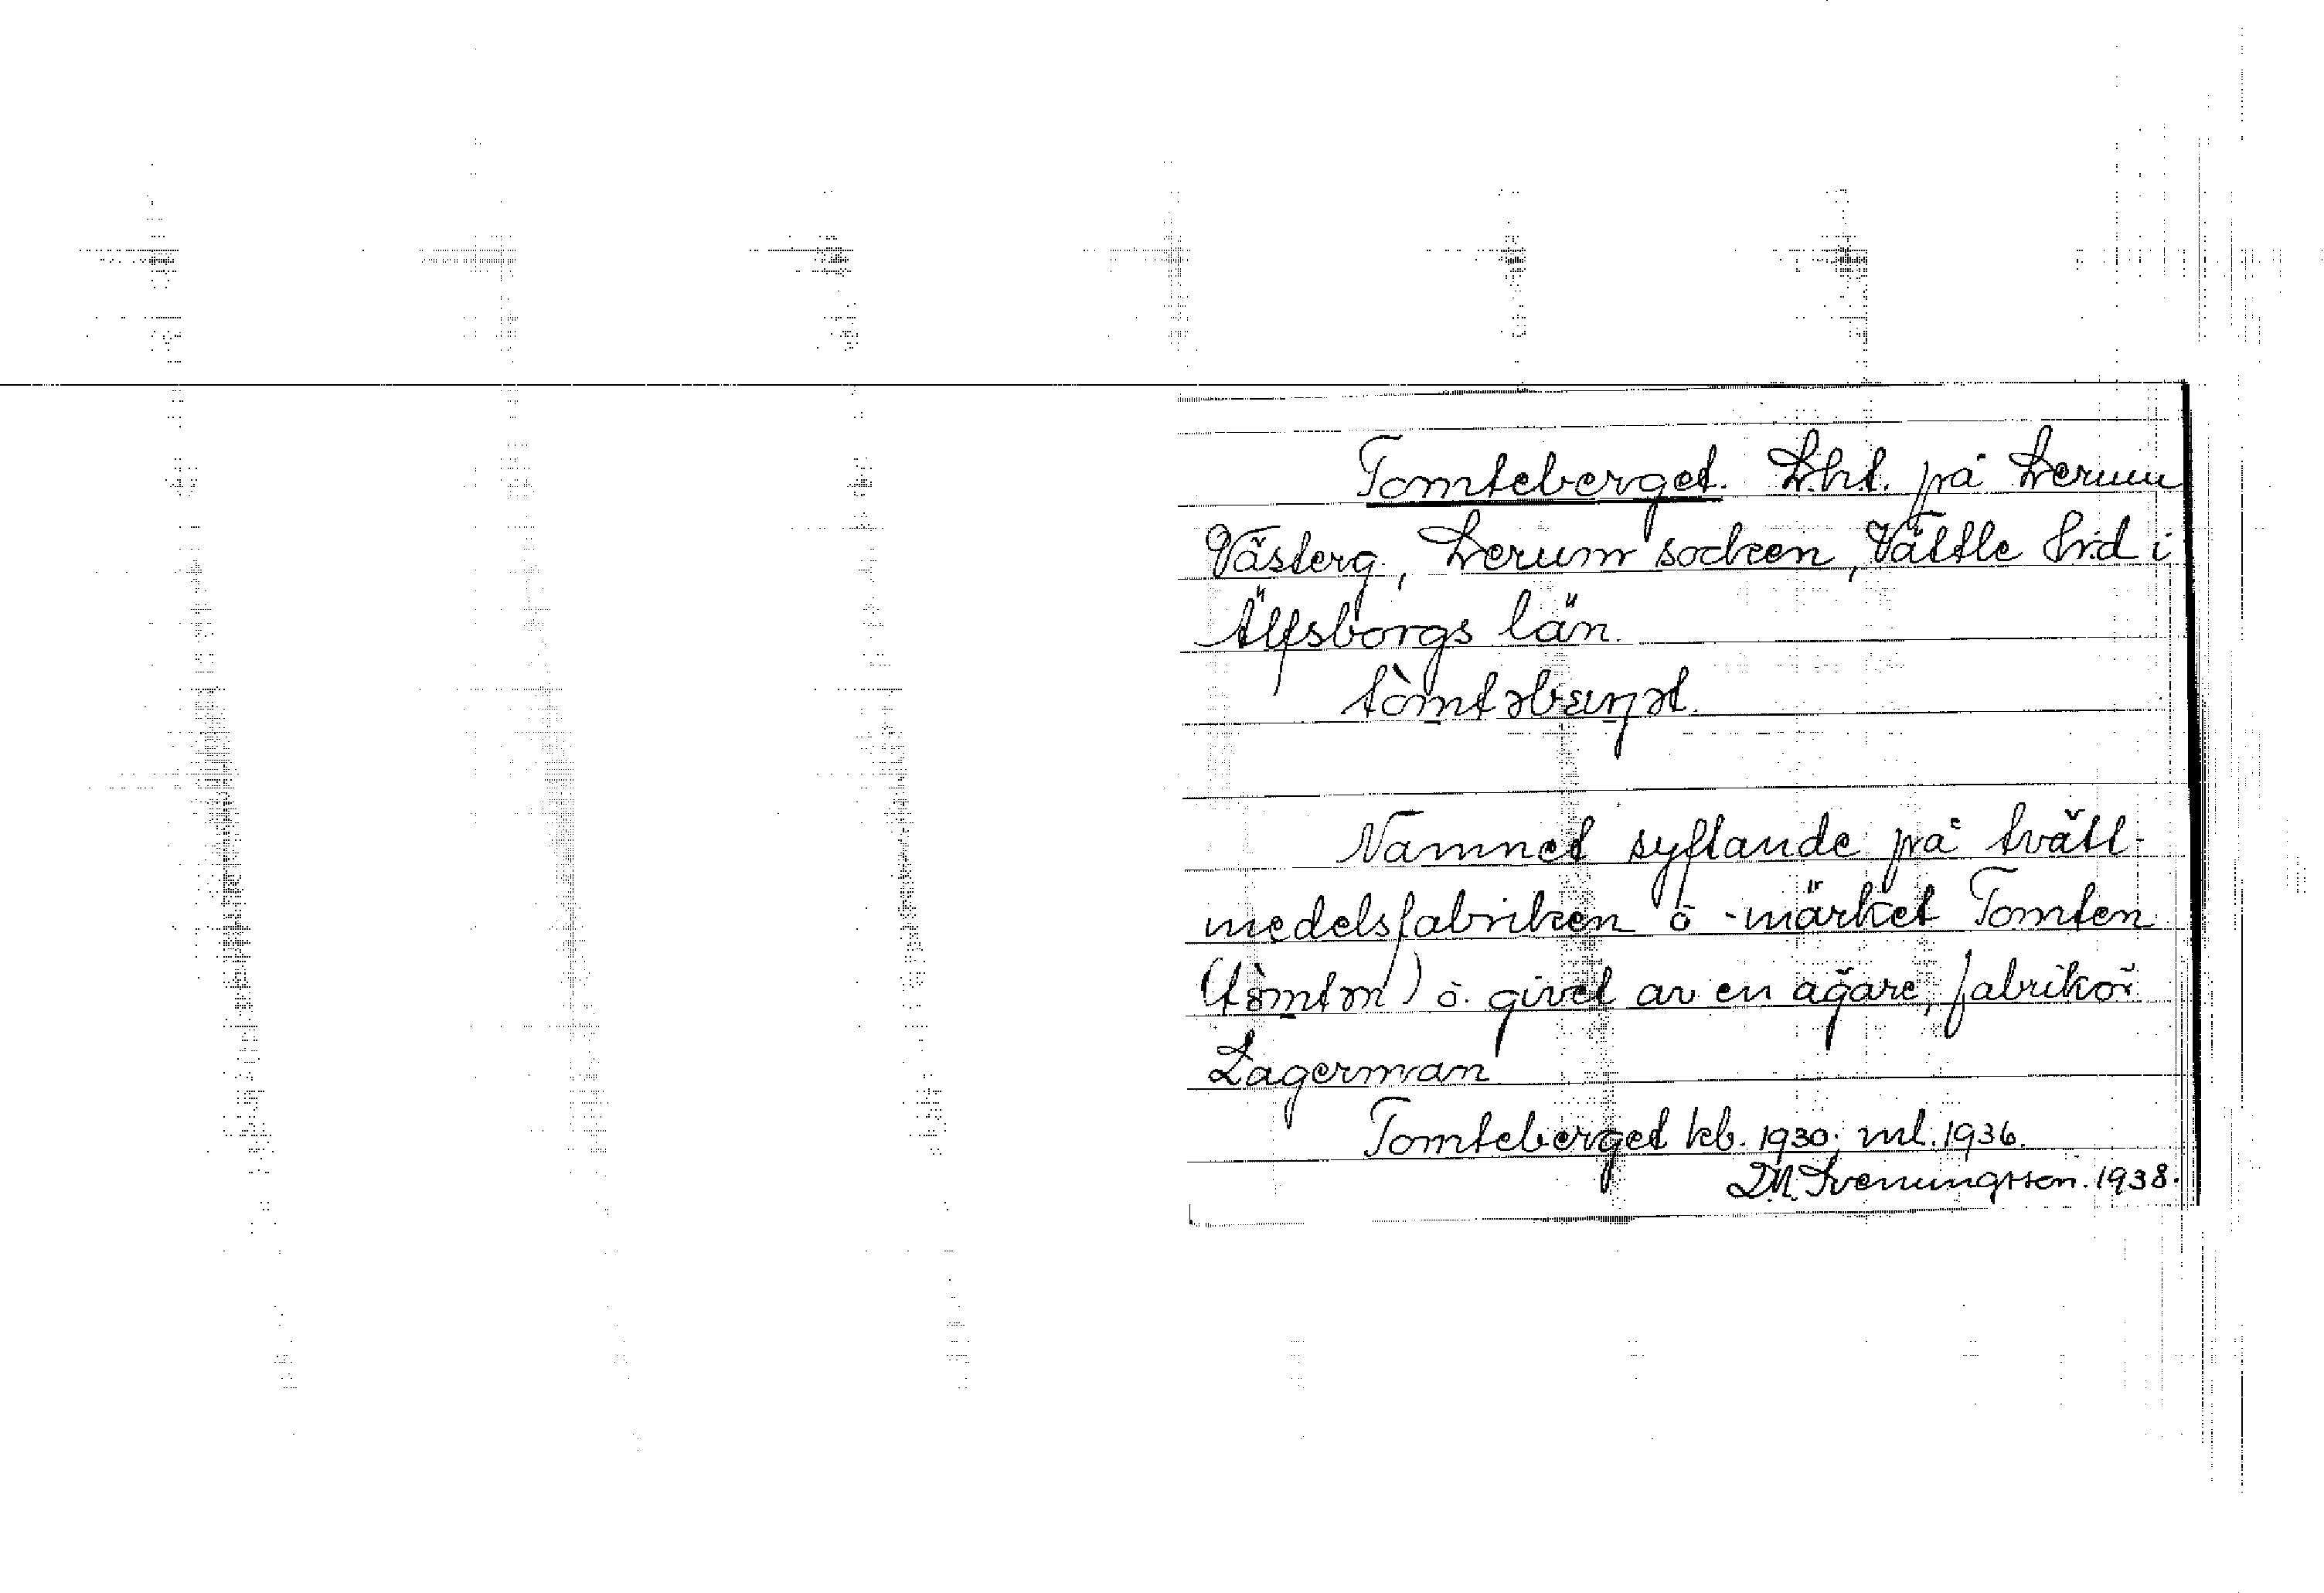 Tomteberget. Lht. på Lerum
Västerg., Lerum socken, Vättle hrd i
Älfsborgs län.
tòmtəbærŋət.
Namnet syftande på tvätt-
medelsfabriken o -märket Tomten
(tòmtən) o. givet av en ägare, fabrikör
Lagerman
Tomteberget kb. 1930; ml. 1936.
D.M. Svenungsson. 1938.